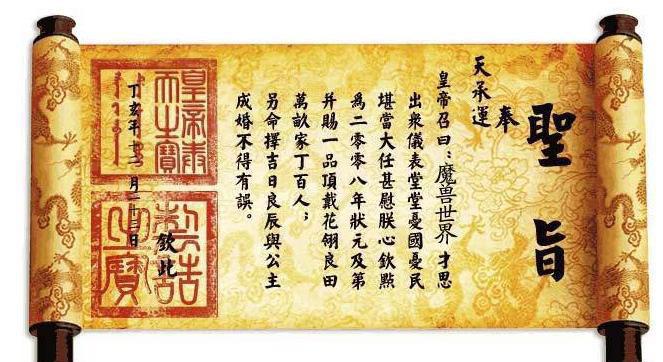 聖旨
奉
天承運
皇帝召曰：魔兽世界才思
出衆儀表堂堂憂國憂民
堪當大任甚慰朕心欽點
爲二零零八年狀元及第
并賜一品頂戴花翎良田
萬畝家丁百人；
另命擇吉日良辰與公主
成婚不得有誤。
欽此
丁亥年十月二十日
皇帝奉
天之寶
制誥
之寶